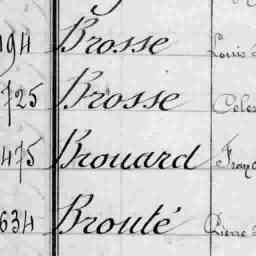 194 Brosse Louis
725 Brosse Céles
475 Brouard Franç
634 Brouté Pierre